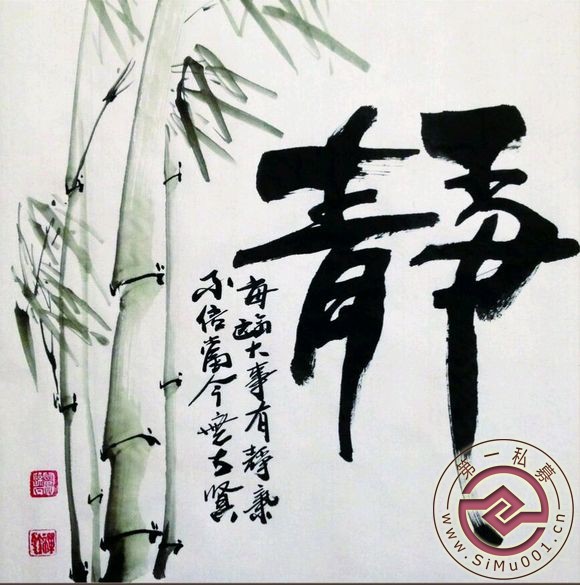 靜
每臨大事有靜氣
不信當今無古賢
第一私募
www.SiMu001.cn